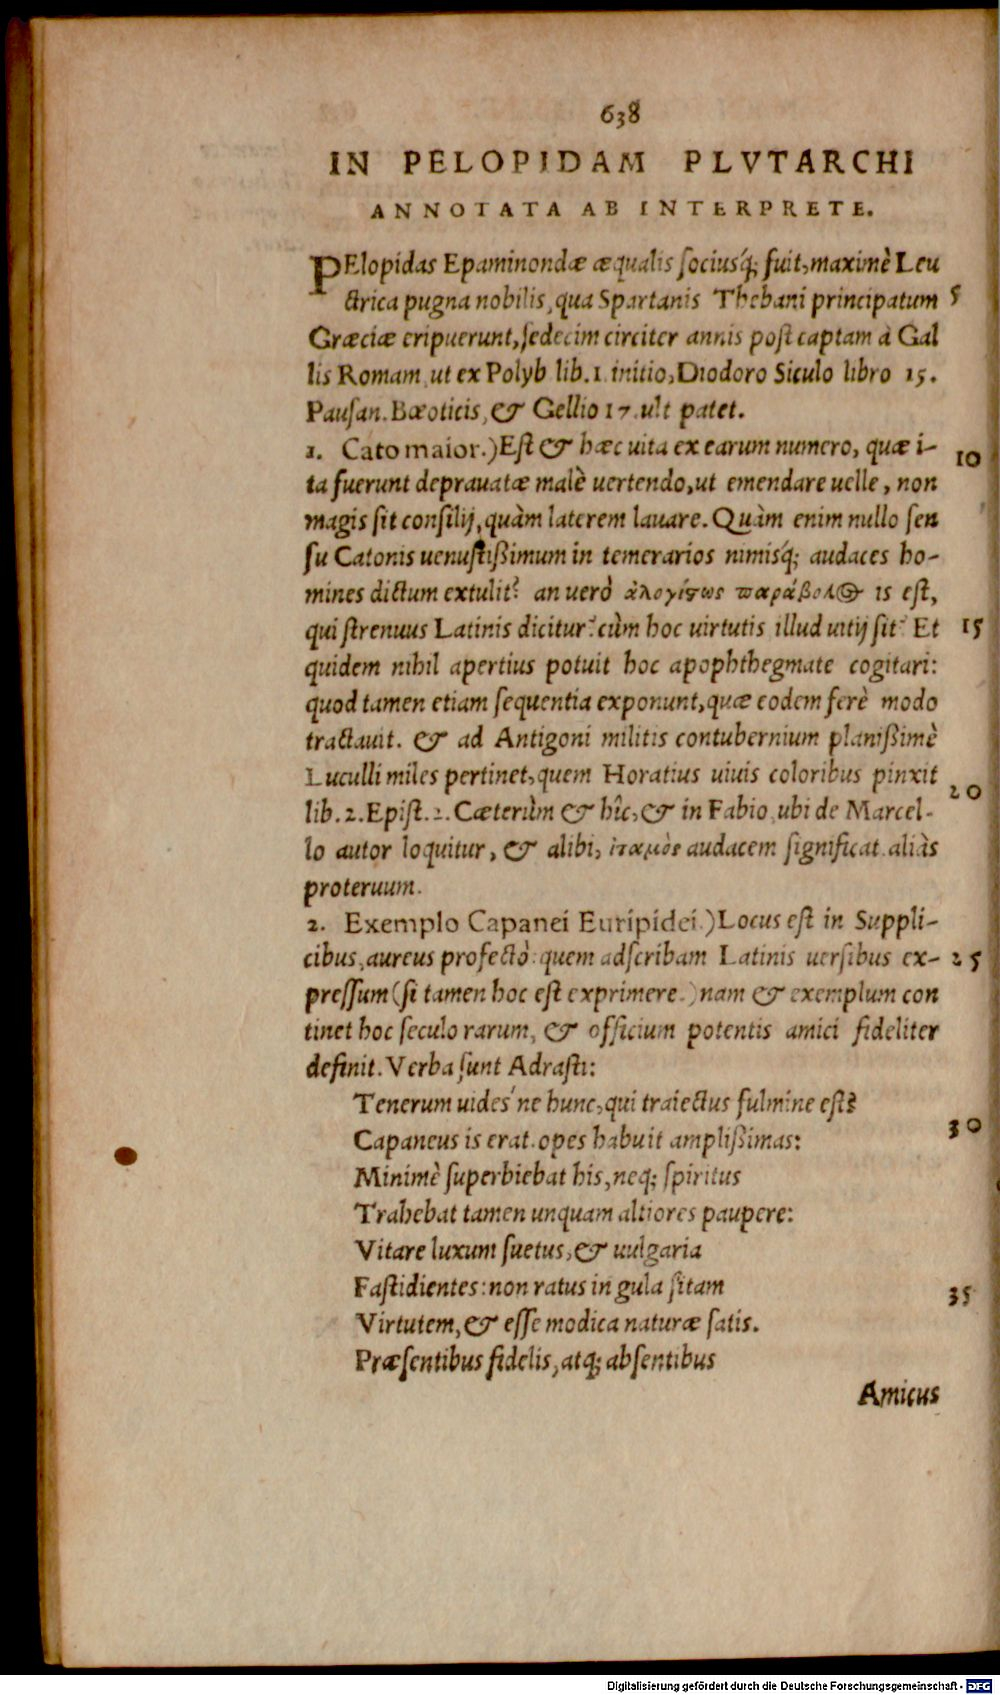 638
IN PELOPIDAM PLVTARCHI
ANNOTATA AB INTERPRETE.
PElopidas Epaminondæ æqualis ſociusq́; fuit, maximè Leu
ctrica pugna nobilis, qua Spartanis Thebani principatum 5
Græciæ eripuerunt, ſedecim circiter annis poſt captam à Gal
lis Romam, ut ex Polyb lib. 1. initio, Diodoro Siculo libro 15.
Pauſan. Bœoticis, & Gellio 17. ult patet.
1. Cato maior.) Eſt & hæc uita ex earum numero, quæ i- 10
ta fuerunt deprauatæ malè uertendo, ut emendare uelle, non
magis ſit conſilij, quàm laterem lauare. Quàm enim nullo ſen
ſu Catonis uenuſtißimum in temerarios nimisq́; audaces ho-
mines dictum extulit? an uerò ἀλογίϛως παράβολος is eſt,
qui ſtrenuus Latinis dicitur? cùm hoc uirtutis, illud uitij ſit? Et 15
quidem nihil apertius potuit hoc apophthegmate cogitari:
quod tamen etiam ſequentia exponunt, quæ eodem ferè modo
tractauit. & ad Antigoni militis contubernium planißimè
Luculli miles pertinet, quem Horatius uiuis coloribus pinxit
lib. 2. Epiſt. 2. Cæterùm & hîc, & in Fabio, ubi de Marcel- 20
lo autor loquitur, & alibi, ἰταμὸς audacem ſignificat. aliàs
proteruum.
2. Exemplo Capanei Euripidei.) Locus eſt in Suppli-
cibus, aureus profectò: quem adſcribam Latinis uerſibus ex- 25
preſſum (ſi tamen hoc eſt exprimere.) nam & exemplum con
tinet hoc ſeculo rarum, & officium potentis amici fideliter
definit. Verba ſunt Adraſti:
Tenerum uides'ne hunc, qui traiectus fulmine eſt?
Capaneus is erat. opes habuit amplißimas: 30
Minimè ſuperbiebat his, neq; ſpiritus
Trahebat tamen unquam altiores paupere:
Vitare luxum ſuetus, & uulgaria
Faſtidientes: non ratus in gula ſitam 35
Virtutem, & eſſe modica naturæ ſatis.
Præſentibus fidelis, atq; abſentibus
Amicus
Digitalisierung gefördert durch die Deutsche Forschungsgemeinschaft - DFG